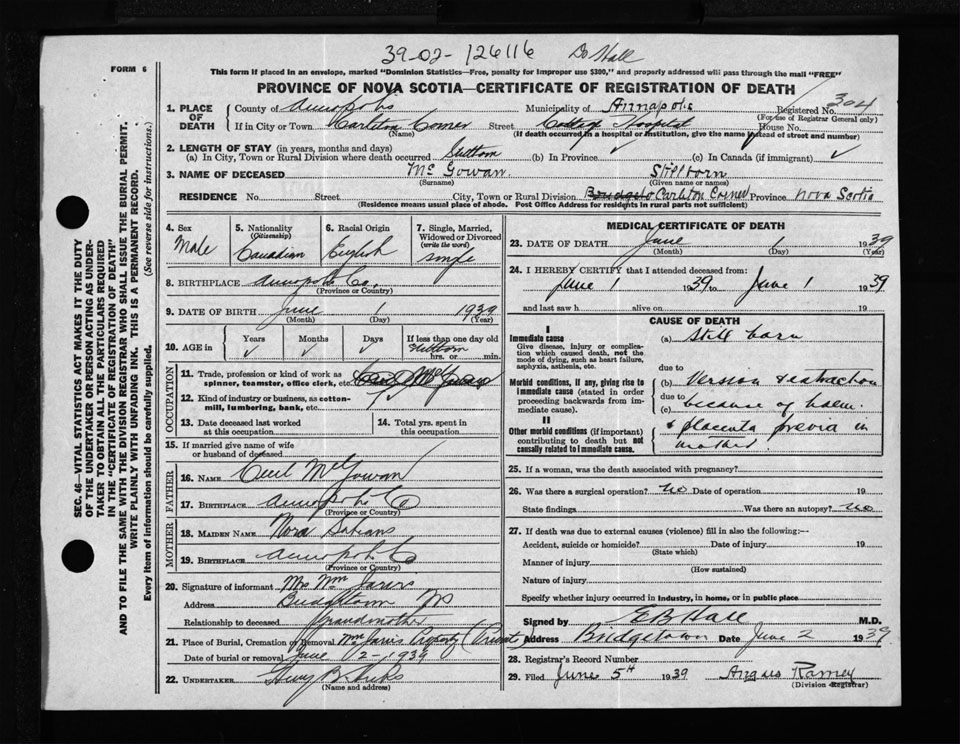 39-02-126116 Dr Hall
FORM 6
This form if placed in an envelope, marked "Dominion Statistics—Free, penalty for improper use $300," and properly addressed will pass through the mail "FREE"
PROVINCE OF NOVA SCOTIA—CERTIFICATE OF REGISTRATION OF DEATH
1. PLACE OF DEATH County of Annapolis Municipality of Annapolis Registered No. 304
(For use of Registrar General only)
If in City or Town Carleton Corner Street Cottage Hospital House No.
(Name) (If death occurred in a hospital or institution, give the name instead of street and number)
2. LENGTH OF STAY (in years, months and days)
(a) In City, Town or Rural Division where death occurred (b) In Province ✓ (c) In Canada (if immigrant) ✓
3. NAME OF DECEASED McGowan Stillborn
(Surname) (Given name or names)
RESIDENCE No. Street City, Town or Rural Division Carleton Corner Province Nova Scotia
(Residence means usual place of abode. Post Office Address for residents in rural parts not sufficient)
4. Sex Male
5. Nationality (Citizenship) Canadian
6. Racial Origin English
7. Single, Married, Widowed or Divorced (write the word) single
8. BIRTHPLACE Annapolis Co.
(Province or Country)
9. DATE OF BIRTH June 1 1939
(Month) (Day) (Year)
10. AGE in Years ✓ Months ✓ Days ✓ If less than one day hrs. or min.
OCCUPATION
11. Trade, profession or kind of work as spinner, teamster, office clerk, etc.
12. Kind of industry or business, as cotton-mill, lumbering, bank, etc.
13. Date deceased last worked at this occupation
14. Total yrs. spent in this occupation
15. If married give name of wife or husband of deceased
FATHER
16. NAME Cecil McGowan
17. BIRTHPLACE Annapolis Co
(Province or Country)
MOTHER
18. MAIDEN NAME Nora
19. BIRTHPLACE Annapolis Co
(Province or Country)
20. Signature of informant Mrs Wm Jarvis
Address Bridgetown NS
Relationship to deceased Grandmother
21. Place of Burial, Cremation or Removal Wm Jarvis Property (Private)
Date of burial or removal June 2-1939
22. UNDERTAKER
(Name and address)
MEDICAL CERTIFICATE OF DEATH
23. DATE OF DEATH June 1 1939
(Month) (Day) (Year)
24. I HEREBY CERTIFY that I attended deceased from:
June 1 1939 to June 1 1939
and last saw h alive on 19
CAUSE OF DEATH
I
Immediate cause
Give disease, injury or complication which caused death, not the mode of dying, such as heart failure, asphyxia, asthenia, etc.
(a) Still born
due to
Morbid conditions, if any, giving rise to Immediate cause (stated in order proceeding backwards from immediate cause).
(b) Version & extraction
due to
(c) because of haem.
II
Other morbid conditions (if important) contributing to death but not causally related to immediate cause.
& placenta previa in
mother
25. If a woman, was the death associated with pregnancy?
26. Was there a surgical operation? no Date of operation 19
State findings Was there an autopsy? no
27. If death was due to external causes (violence) fill in also the following:—
Accident, suicide or homicide? Date of injury 19
(State which)
Manner of injury
(How sustained)
Nature of injury
Specify whether injury occurred in industry, in home, or in public place
Signed by E B Hall M.D.
Address Bridgetown Date June 2 1939
28. Registrar's Record Number
29. Filed June 5th 1939 Angus Ramey
(Division Registrar)
SEC. 46—VITAL STATISTICS ACT MAKES IT THE DUTY
OF THE UNDERTAKER OR PERSON ACTING AS UNDER-
TAKER TO OBTAIN ALL THE PARTICULARS REQUIRED
IN THE "CERTIFICATE OF REGISTRATION OF DEATH"
AND TO FILE THE SAME WITH THE DIVISION REGISTRAR WHO SHALL ISSUE THE BURIAL PERMIT.
WRITE PLAINLY WITH UNFADING INK. THIS IS A PERMANENT RECORD.
Every item of information should be carefully supplied. (See reverse side for instructions.)